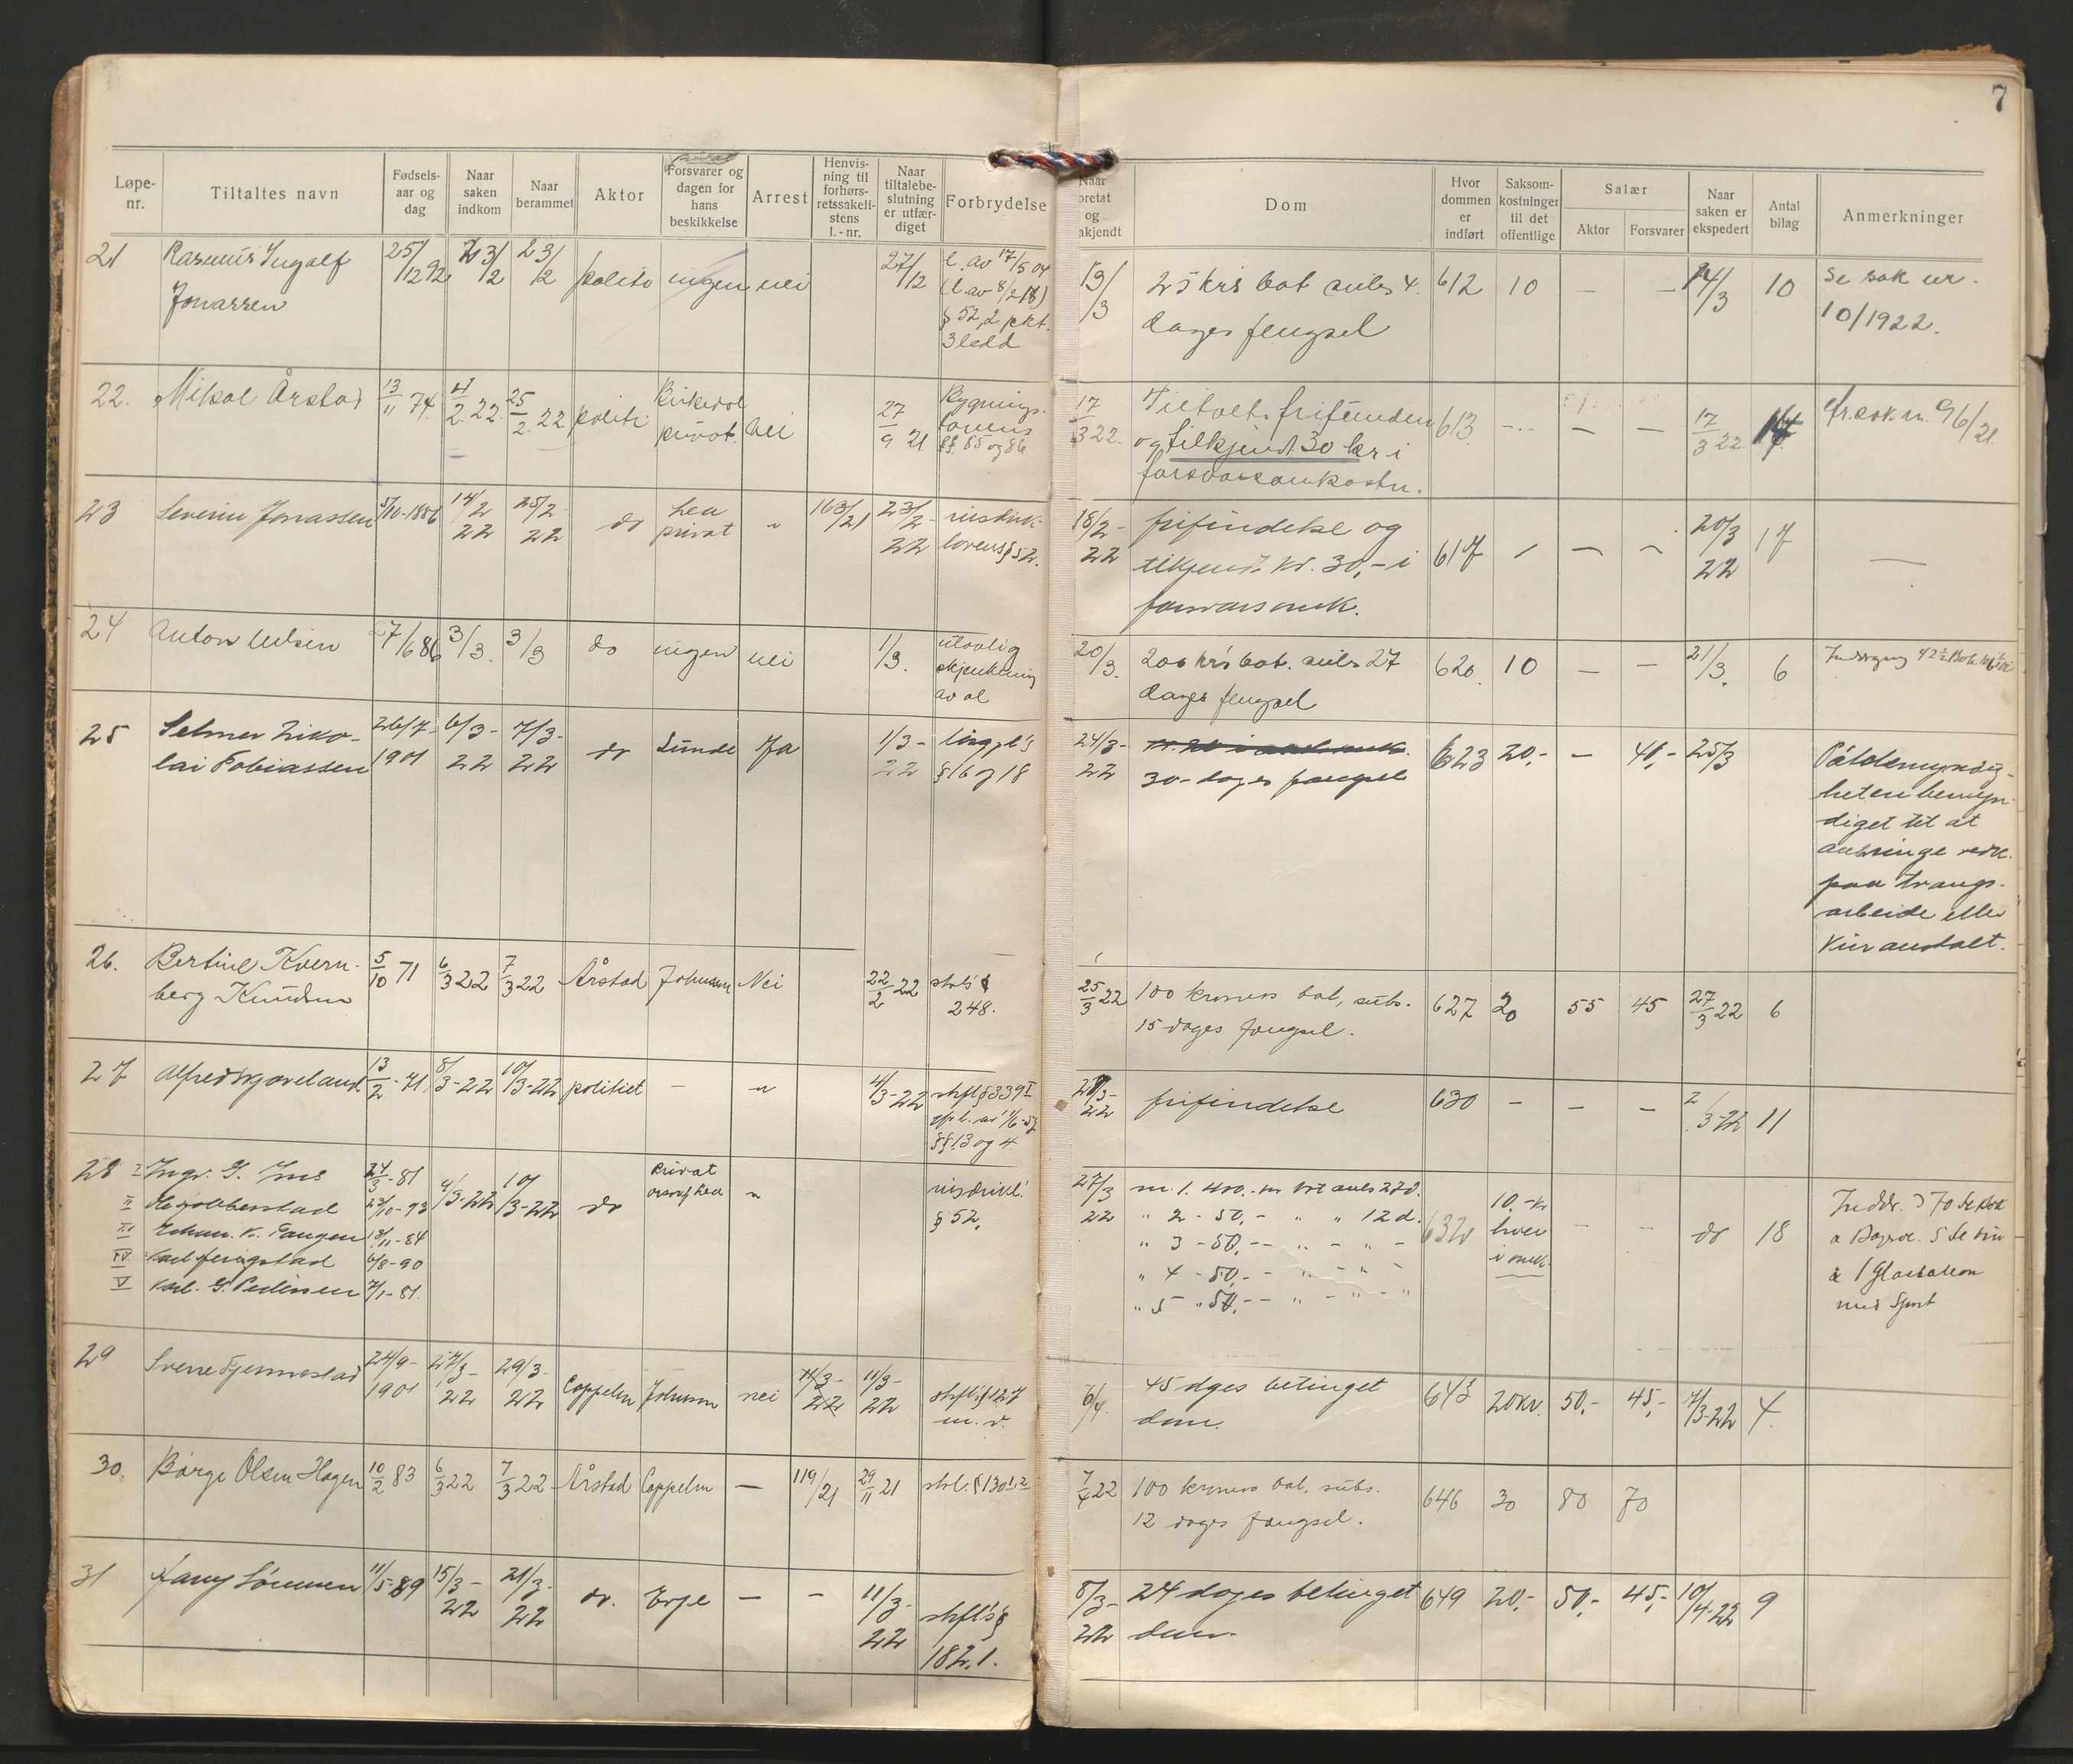 7
privat
Løpe-nr.
Tiltaltes navn
Fødsels-aar og dag
Naar saken indkom
Naar berammet
Aktor
Forsvarer og dagen for hans beskikkelse
Arrest
Henvis-ning til forhørs-retssakeli-stens l.-nr.
Naar tiltalebe-slutning er utfær-diget
Forbrydelse
Naar
og
akjendt
Dom
Hvor dommen er indført
Saksom-kostninger til det offentlige
Salær
Aktor
Forsvarer
Naar saken er ekspedert
Antal bilag
Anmerkninger
21 Rasmus Ingolf 25/12 92 23/2 politi ingen nei 27/12 l. av 17/5 04
Jonassen (l. av 8/2 18)
§ 52, 2 pkt.
3 ledd
13/3 25 krs bot subs 4 612 10 — — 14/3 10 Se sak nr.
dages fengsel 10/1922.
22. Mikal Årstad 13/11 74. 4/2 22 25/2 22 politi privat. Nei 27/9 21 Bygnings-
lovens
§§ 85 og 86
17/3 22. Tiltalte frifunden 613 — — 17/3 22 96/21
og tilkjendt 30 kr i
forsvarsomkostn.
23 Severin Jonassen 5/10-1886 14/2 22 25/2 22 do privat " 163/21 23/2-22 rusdrik-
lovens § 52.
18/2-22 frifindelse og 617 20/3 22 17 —
tilkjendt kr. 30,- i
forsvarsomk.
24 Anton Nilsen 27/6 86 3/3. 3/3 do ingen nei 1/3. ulovlig
skjenkning
av øl
20/3. 200 krs bot. subs 27 620 10 — — 21/3. 6
dages fengsel
25 Selmer Niko- 26/7-1901 6/3-22 7/3-22 do Sunde Ja 1/3-22 løsgjl's
lai Tobiassen § 16 og 18
24/3-22 623 20,- — 25/3
30- dages fængsel
Påtalemyndig-
heten bemyn-
diget til at
anbringe vedk.
paa tvangs-
arbeide eller
kuranstalt.
26. Bertine Kvern- 5/10 71 6/3 22 7/3 22 Årstad Johnsen Nei 22/2 22 strl's §
berg Knudsen 248.
25/3 22 100 kroners bot, subs. 627 20 55 45 27/3 22 6
15 dages fængsel.
27 13/2-71 8/3-22 10/3-22 politiet — " 4/3-22 strfl § 339 I
§§ 13 og 4
frifindelse 630 — — — 11
28 I Ingv. 24/3-81 10/3-22 do privat " rusdrikl.
II § 52.
III Johan. K. Tangen 13/11-84
IV Karl 6/8-90
V Karl. G. Pedersen 7/1-81.
27/3 22 nr. 1. 400.- kr bot subs 27 d. 632 10.- kr — — do 18
" 2 - 50,- " " 12 d. hver
" 3 - 50,- " - " - i omk.
" 4 - 50,- - " - " -
" 5 - " 50,- - " - " - "
med Sprit
29 Sverre 24/9-1901 29/3-22 Coppelen Johnsen nei 11/3-22 11/3-22 strfl's § 127
m. v.
6/4. 45 dages betinget 643 20 kr. 50,- 45,- 7/3-22 4.
dom.
30. Børge Olsen Hagen 10/2 83 6/3 22 7/3 22 Årstad Coppelen — 119/21 29/11 21 strl. § 130 1.2
7/4 22 100 kroners bot. subs. 646 30 80 70
12 dages fængsel.
31 Fany 11/5-89 15/3-22 21/3-22 do. Erge — — 11/3-22 strfl's §
182,1.
8/3-22 24 dages betinget 649 20,- 50,- 45,- 10/4-22 9
dom.